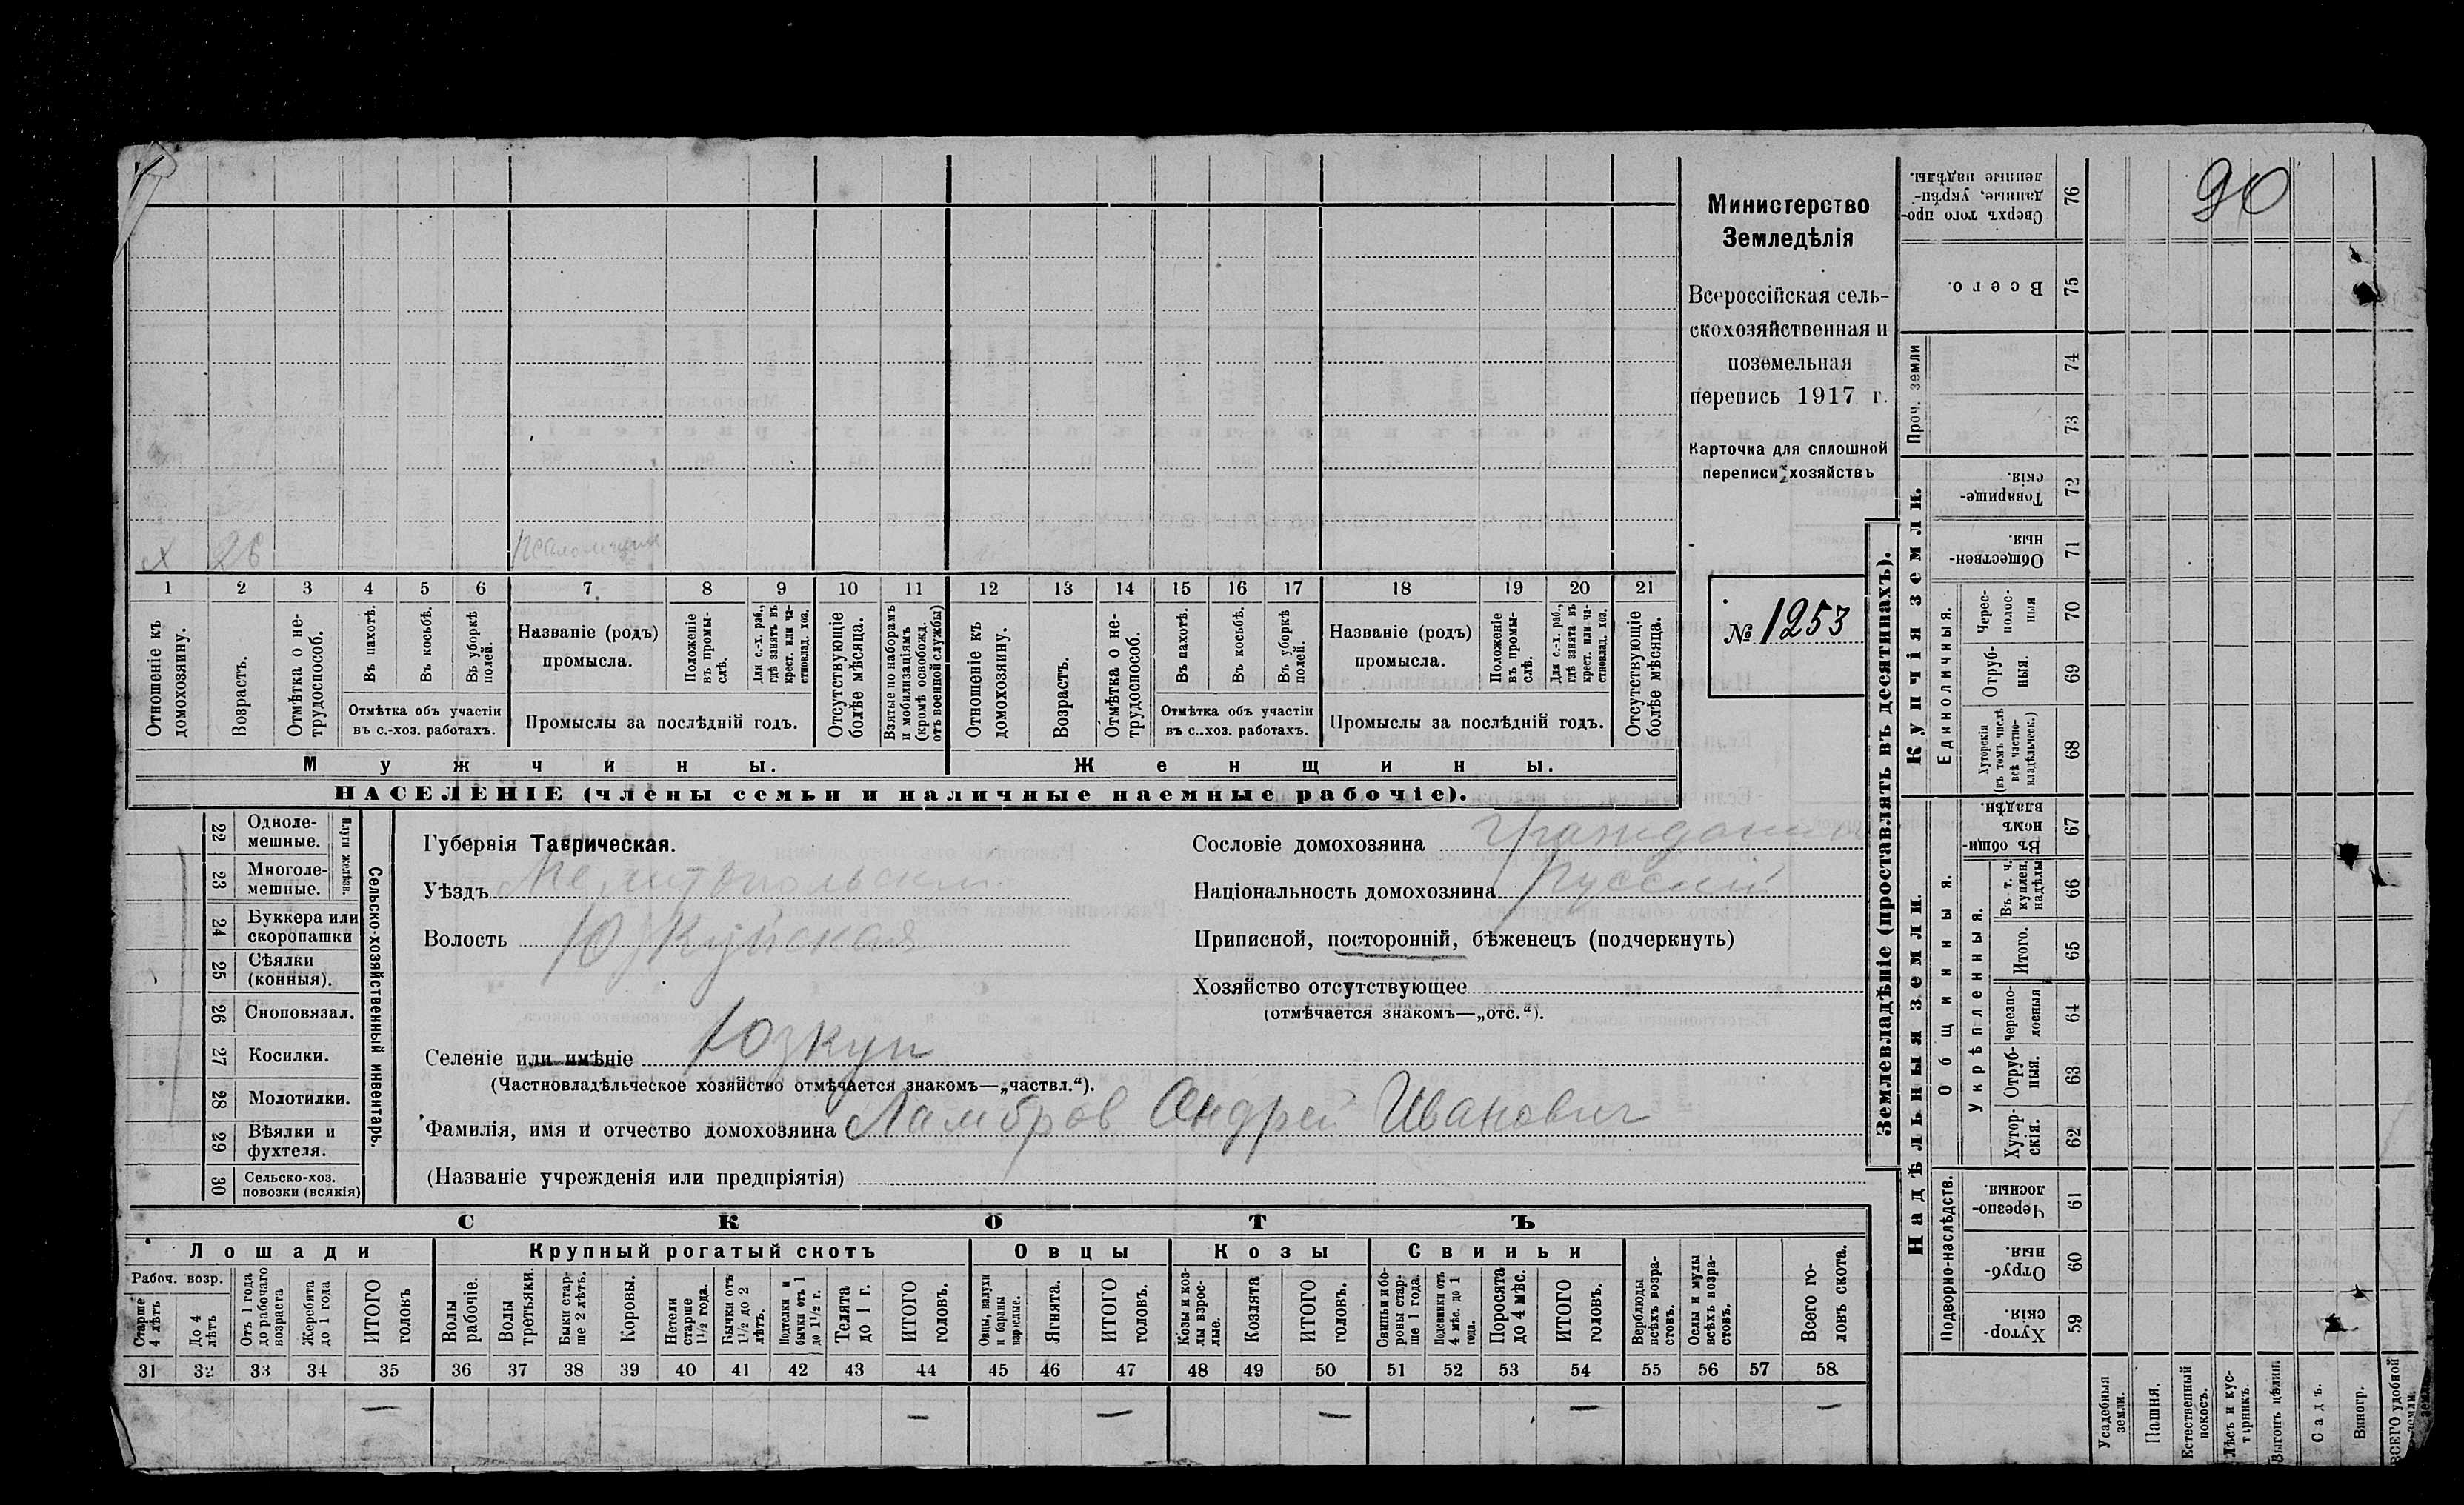 90
Министерство
Земледѣлія
Всероссійская сель-
скохозяйственная и
поземельная
перепись 1917 г.
Карточка для сплошной
переписи хозяйствъ
№ 1253
х 26
1 2 3 4 5 6 7 8 9 10 11 12 13 14 15 16 17 18 19 20 21
Отношеніе къ домохозяину.
Возрастъ.
Отмѣтка о не-трудоспособ.
Въ пахотѣ.
Въ косьбѣ.
Въ уборкѣ полей.
Отмѣтка объ участіи въ с.-хоз. работахъ.
Названіе (родъ) промысла.
Положеніе въ промы-слѣ.
Для с.-х. раб., гдѣ занятъ въ крест. или ча-стновлад. хоз.
Промыслы за послѣдній годъ.
Отсутствующіе болѣе мѣсяца.
Взятые по наборамъ и мобилизаціямъ (кромѣ освобожд. отъ военной службы)
Отношеніе къ домохозяину.
Возрастъ.
Отмѣтка о не-трудоспособ.
Въ пахотѣ.
Въ косьбѣ.
Въ уборкѣ полей.
Отмѣтка объ участіи въ с..хоз. работахъ.
Названіе (родъ) промысла.
Положеніе въ промы-слѣ.
Для с.-х. раб., гдѣ занята въ крест. или ча-стновлад. хоз.
Промыслы за послѣдній годъ.
Отсутствующіе болѣе мѣсяца.
Мужчины. Женщины.
НАСЕЛЕНІЕ (члены семьи и наличные наемные рабочіе).
22 Одноле-мешные.
23 Многоле-мешные.
Плуги желѣзн.
24 Буккера или скоропашки
25 Сѣялки (конныя).
26 Сноповязал.
27 Косилки.
28 Молотилки.
29 Вѣялки и фухтеля.
30 Сельско-хоз. повозки (всякія)
Сельско-хозяйственный инвентарь.
Губернія Таврическая.
Уѣздъ Мелитопольскій
Волость Юзкуйская
Селеніе или имѣніе Юзкуи
(Частновладѣльческое хозяйство отмѣчается знакомъ—„частвл.“).
Фамилія, имя и отчество домохозяина Ламбров Андрей Иванович
(Названіе учрежденія или предпріятія)
Сословіе домохозяина гражданин
Національность домохозяина Русский
Приписной, посторонній, бѣженецъ (подчеркнуть)
Хозяйство отсутствующее
(отмѣчается знакомъ—„отс.“).
СКОТЪ
Лошади Крупный рогатый скотъ Овцы Козы Свиньи
Рабоч. возр.
Старше 4 лѣтъ
До 4 лѣтъ
Отъ 1 года до рабочаго возраста
Жеребята до 1 года
ИТОГО головъ
Волы рабочіе.
Волы третьяки.
Быки стар-ше 2 лѣтъ.
Коровы.
Нетели старше 1½ года.
Бычки отъ 1½ до 2 лѣтъ.
Подтелки и бычки отъ 1 до 1½ г.
Телята до 1 г.
ИТОГО головъ.
Овцы, валухи и бараны взрослые.
Ягнята.
ИТОГО головъ.
Козы и коз-лы взрос-лые.
Козлята
ИТОГО головъ.
Свиньи и бо-ровы стар-ше 1 года.
Подсвинки отъ 4 мѣс. до 1 года.
Поросята до 4 мѣс.
ИТОГО головъ.
Верблюды всѣхъ возра-стовъ.
Ослы и мулы всѣхъ возра-стовъ.
Всего го-ловъ скота.
31 32 33 34 35 36 37 38 39 40 41 42 43 44 45 46 47 48 49 50 51 52 53 54 55 56 57 58
— — — — — —
Землевладѣніе (проставлять въ десятинахъ).
Купчія земли.
Надѣльныя земли.
Сверхъ того про-данные, укрѣп-ленные надѣлы. 76
Всего. 75
Проч. земли 74 73
Товарище-скія. 72
Обществен-ныя. 71
Единоличныя.
Черес-полос-ныя 70
Отруб-ныя. 69
Хуторскія (въ томъ числѣ всѣ частно-владѣльческ.) 68
Общинныя.
Въ общин-номъ владѣн. 67
Укрѣпленныя.
Въ т. ч. куплен. надѣлы 66
Итого. 65
Черезпо-лосныя 64
Отруб-ныя. 63
Хутор-скія. 62
Подворно-наслѣдств.
Черезпо-лосныя. 61
Отруб-ныя. 60
Хутор-скія. 59
Усадебныя земли.
Пашня.
Естественный покосъ.
Лѣсъ и кус-тарникъ.
Выгонъ цѣлин.
Садъ.
Виногр.
ВСЕГО удобной земли.